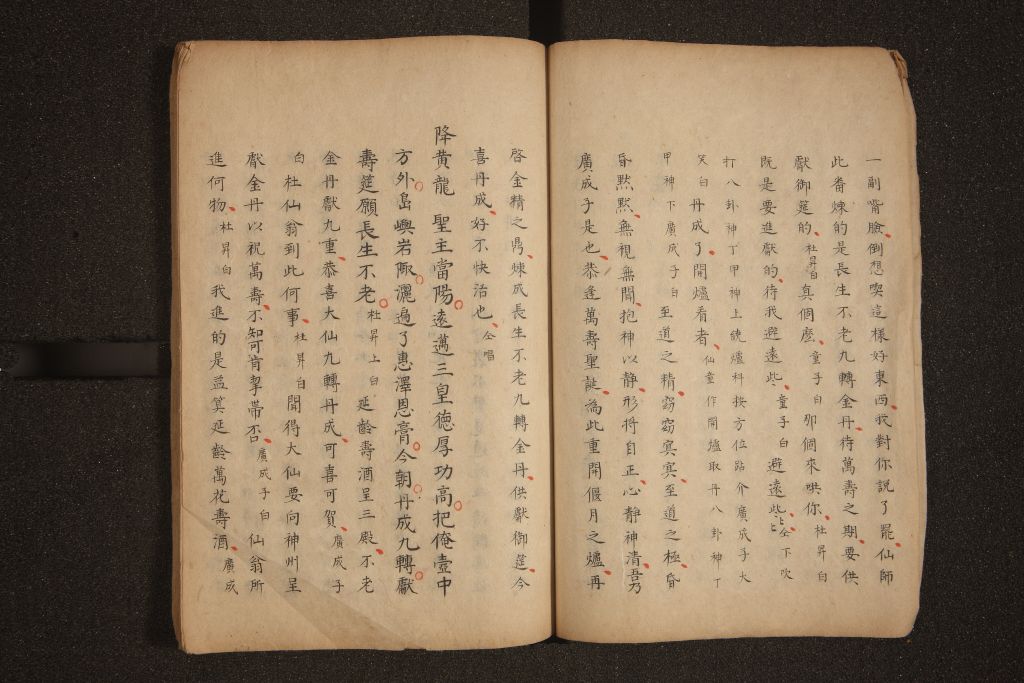 一副嘴臉倒想喫這樣好東西我對你說了罷仙師
此番煉的是長生不老九轉金丹待萬壽之期要供
獻御筵的杜昇白真個麽童子白那個來哄你杜昇白
既是要進獻的待我逰遠些童子白避遠些些仝下吹
打八卦神丁甲神上繞爐科按方位跕介廣成子大
笑白丹成了開爐看者仙童作開爐取丹八卦神丁
甲神下廣成子白至道之精窈窈冥冥至道之極昏
昏默默無視無聞抱神以静形將自正心静神清吾乃
廣成子是也恭逢萬壽聖誕為此重開偃月之爐再
啓金精之鼎煉成長生不老九轉金丹供獻御筵今
喜丹成好不快治也仝唱
降黄龍 聖主當陽遠邁三皇德厚功高把俺壺中
方外島嶼岩陬灑過了惠澤恩膏今朝丹成九轉獻
壽筵願長生不老杜昇上白延齡壽酒呈三殿不老
金丹獻九重恭喜大仙九轉丹成可喜可賀廣成子
白杜仙翁到此何事杜昇白聞得大仙要向神州呈
獻金丹以祝萬壽不知可肯挈帶否廣成子白仙翁所
進何物杜昇白我進的是益筭延齡萬花壽酒廣成